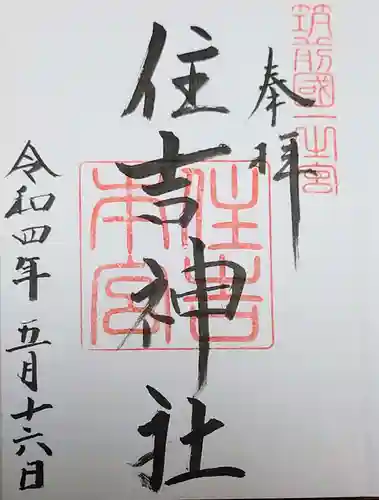 筑前國一之宮
奉拝
住吉神社
住吉本宮
令和四年 五月十六日